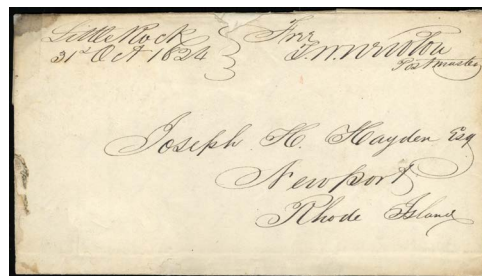 Little Rock
31st Oct 1824
Free
Postmaster
Joseph H. Hayden Esq
Newport
Rhode Island